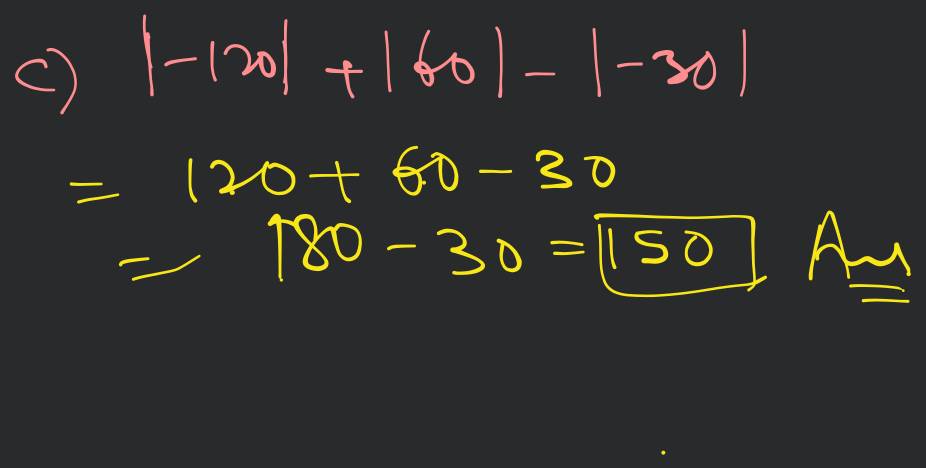 c) |-120| + |60| - |-30|
= 120 + 60 - 30
= 180 - 30 = 150 Ans